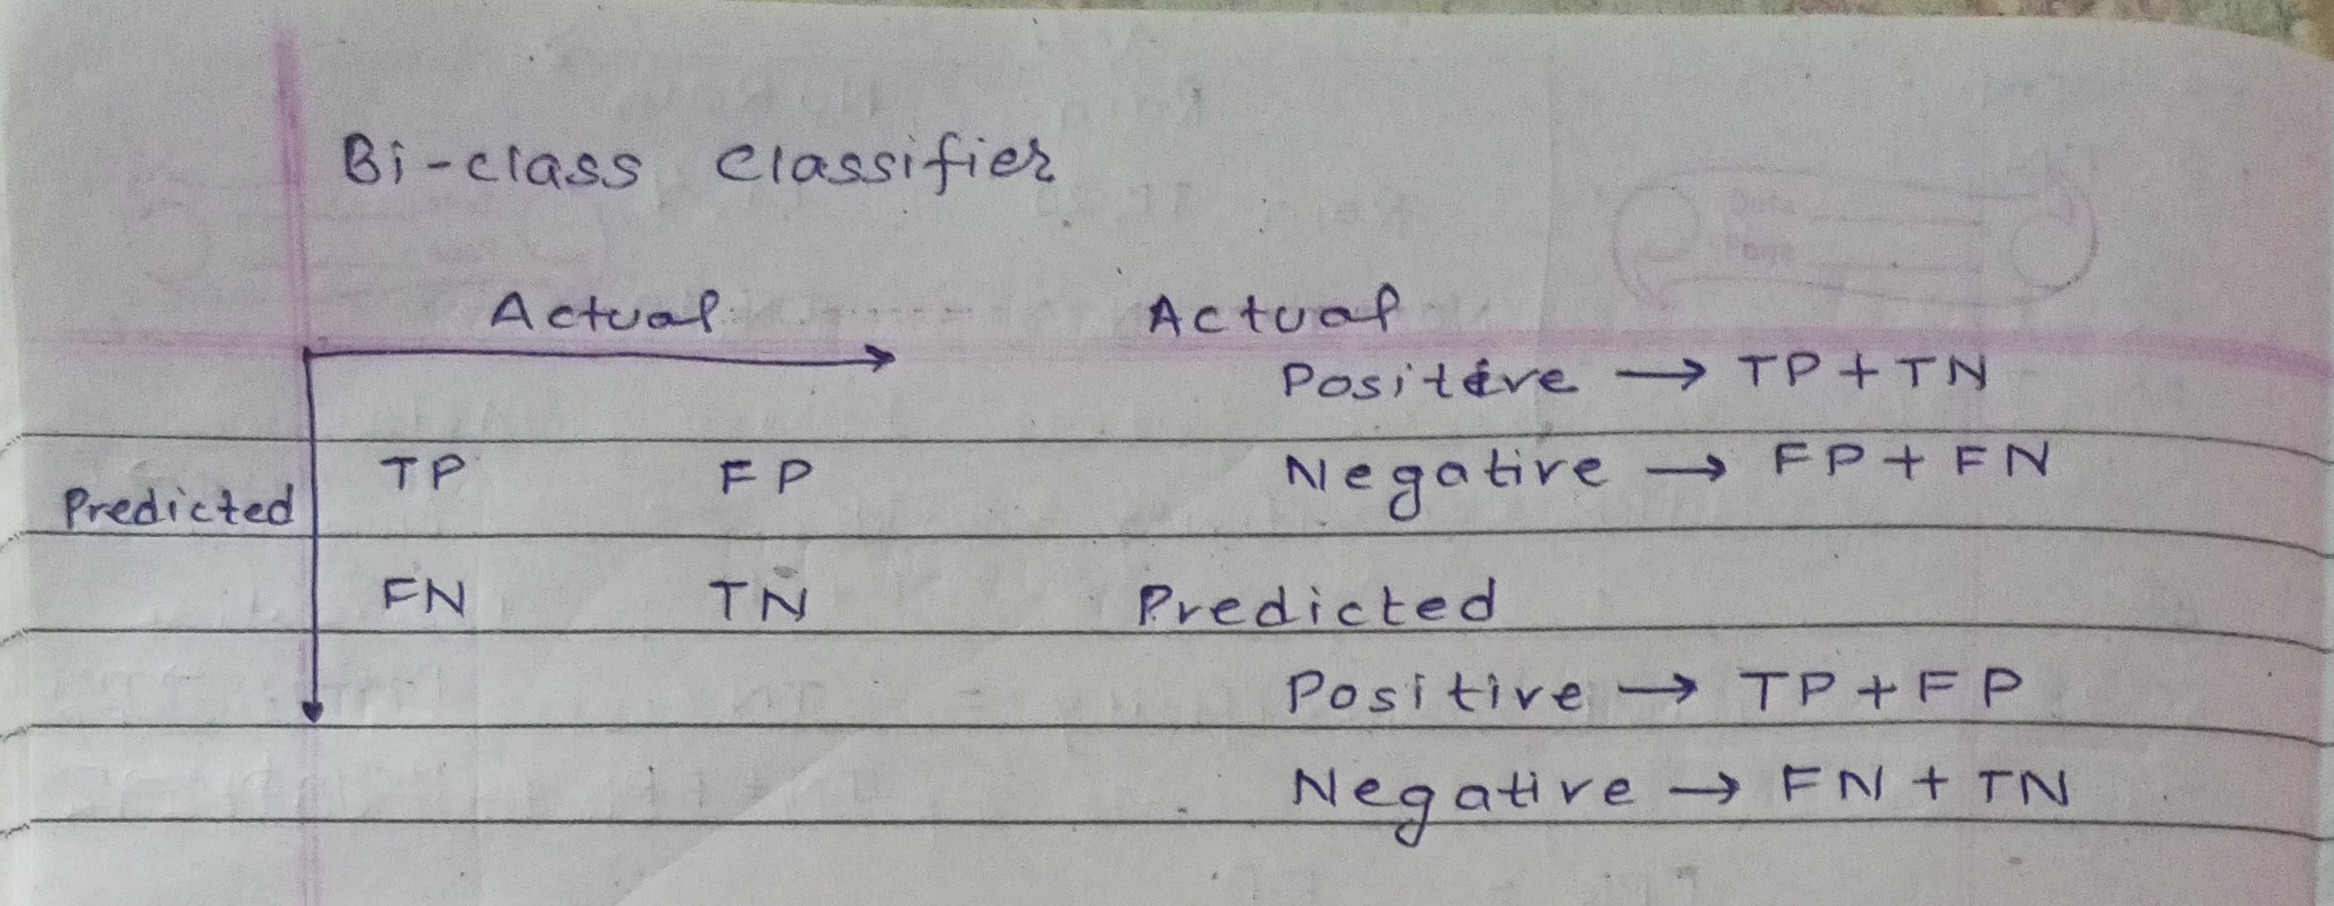 Bi-class Classifier
Date
Page
Actual
Predicted
TP FP
FN TN
Actual
Positive → TP + TN
Negative → FP + FN
Predicted
Positive → TP + FP
Negative → FN + TN